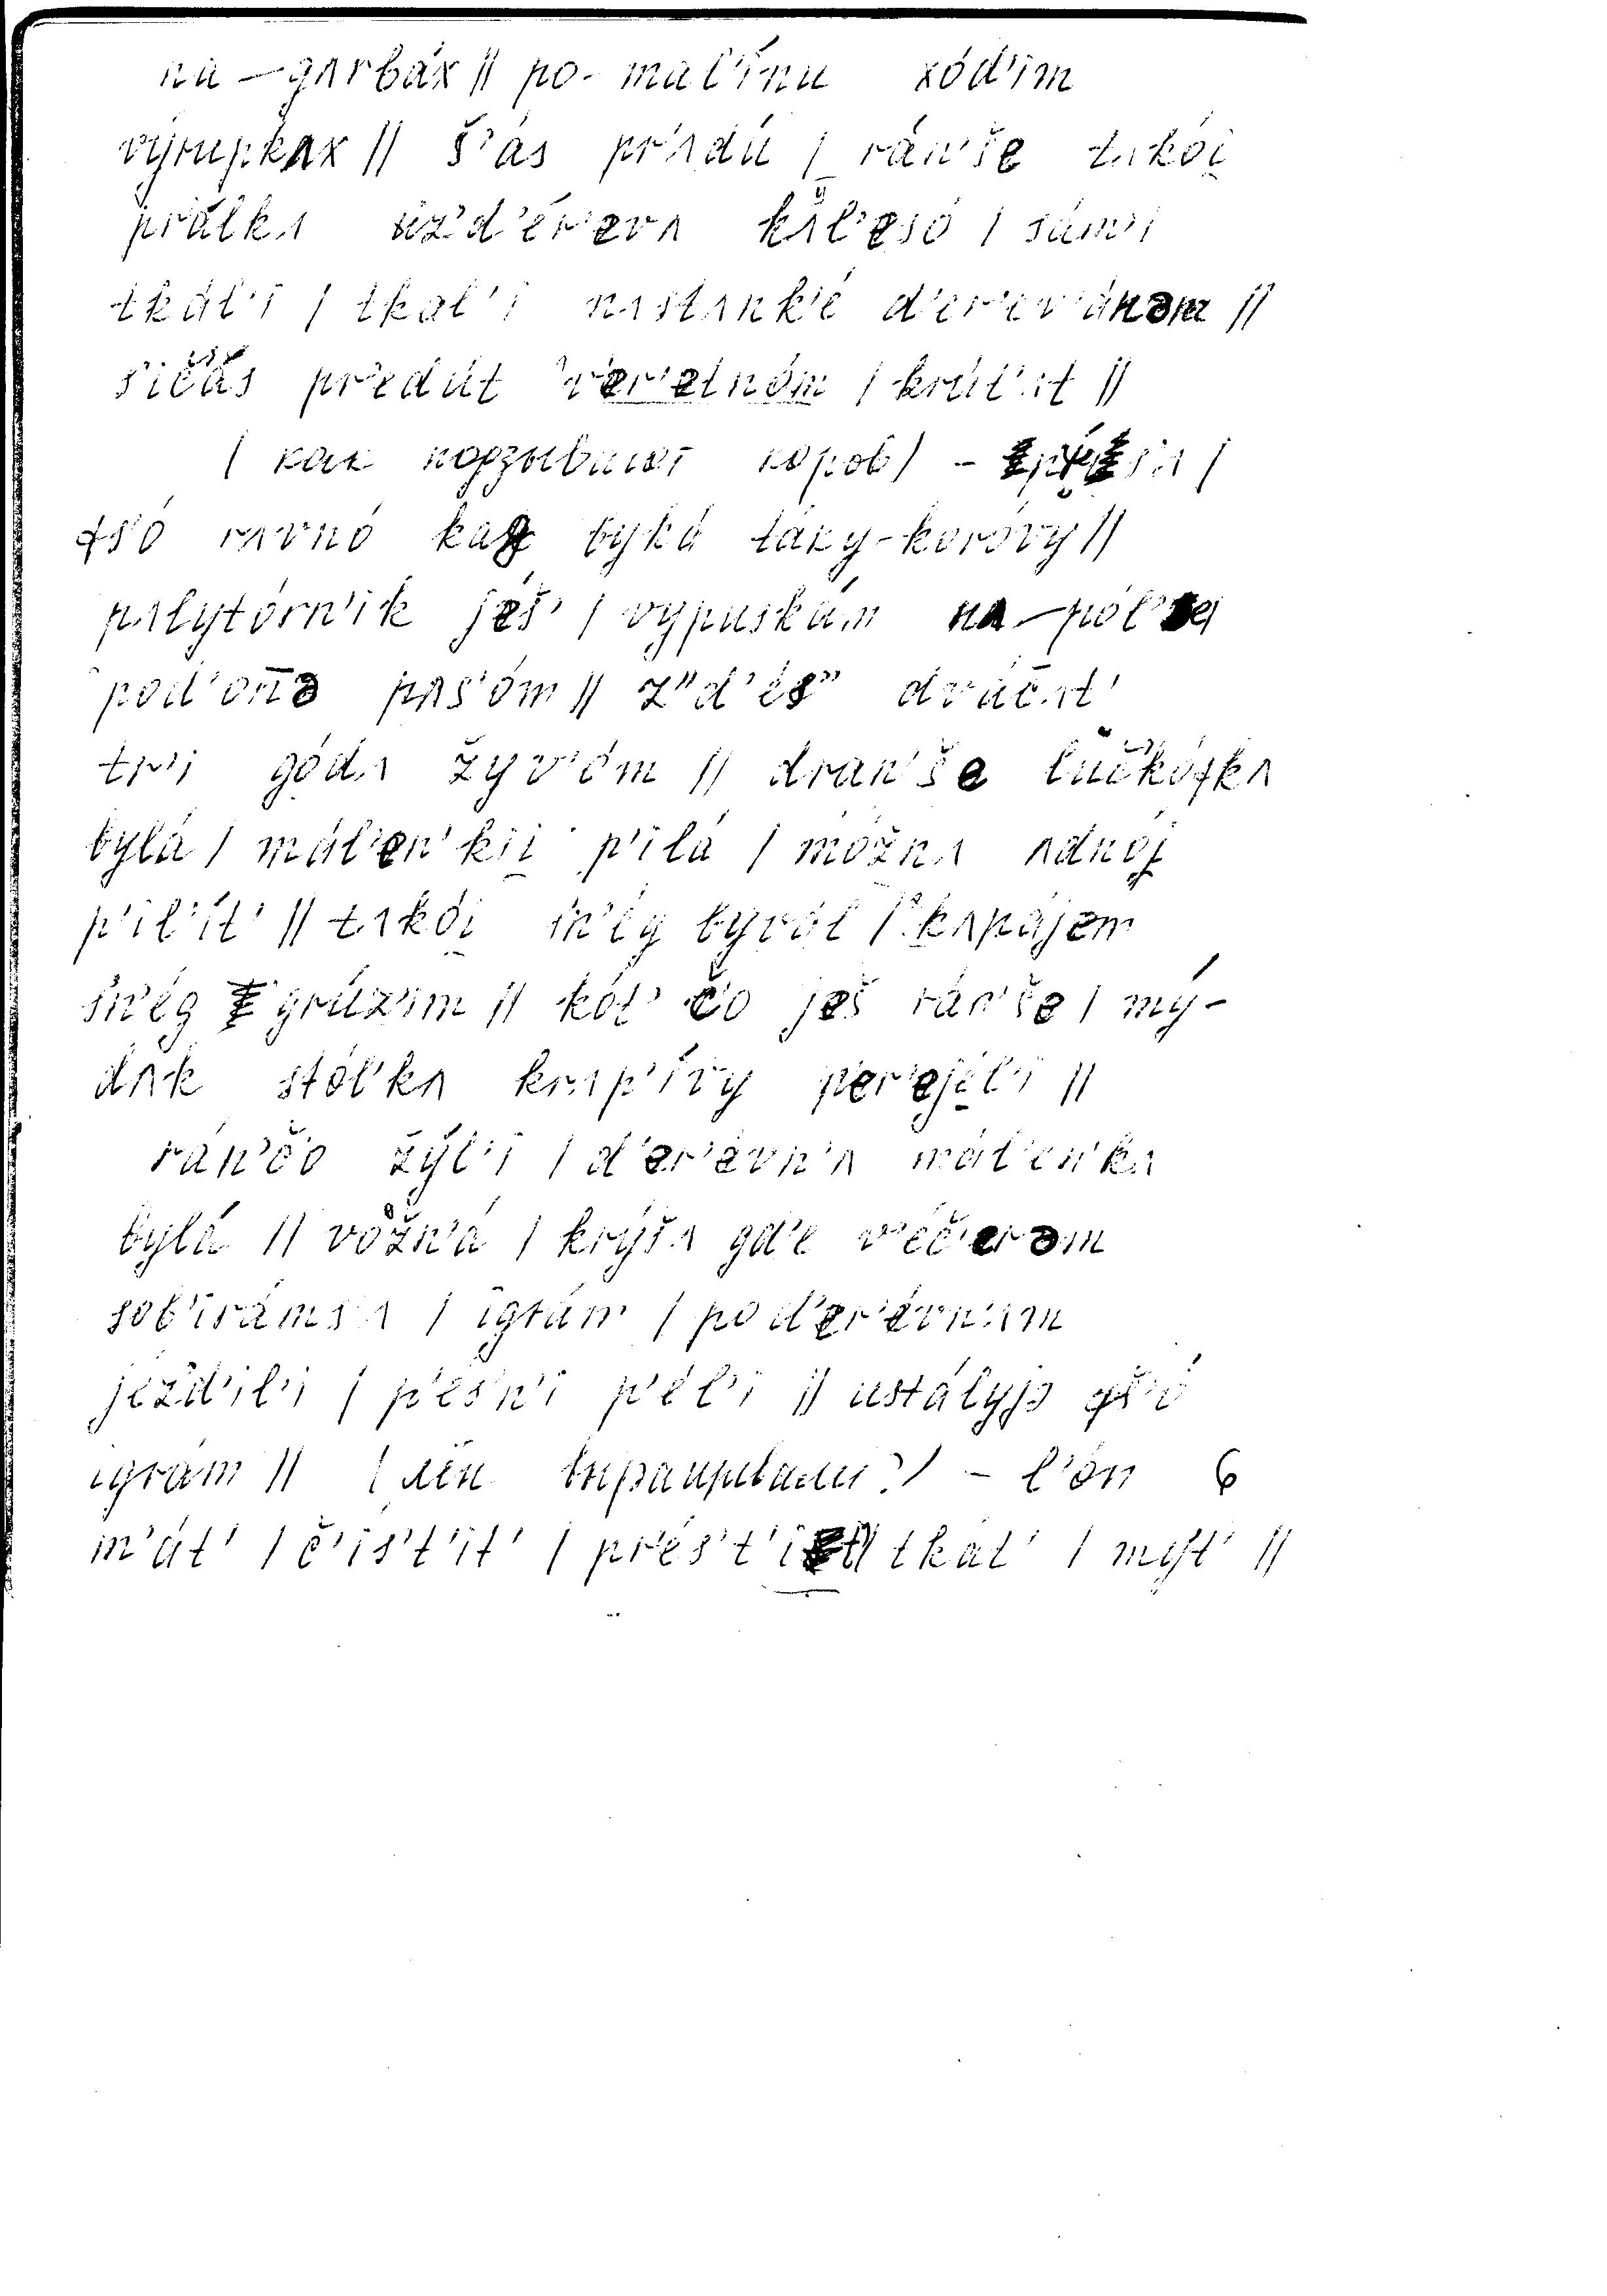 na–gʌrbáx || po- mal'ínu xód'im
výrupkʌx || š'ás pr'ʌdú | rán'še tʌkói̯
pr'álkʌ iz'd'ér'evʌ kʌl'esó | sám'i
tkál'i | tkal'i nʌstʌnk'é d'er'ev'ánəm ||
s'ičás pr'edút v'er'etnóm | krút'ʌt ||
( как подзывают коров ) –
fs'ó rʌvnó kag byká táky-koróvy ||
pʌlytórn'ik jéš' | vypuskám na–pól'e
pod'onə pʌs'óm || z"d'és" dváčʌt'
tr'i gódʌ žyv'óm || dran'še lučkófkʌ
bylá | mál'en'kii̯ p'ilá | móžnʌ ʌdnój
p'il'ít' || tʌkói̯ s'n'ég byvál | kʌpájem
s'n'ég grúz'im || kót' čo ješ rán'še | mý-
dʌk stól'kʌ krʌp'ívy p'er'ejél'i ||
rán'čo žýl'i | d'er'évn'ʌ mál'en'kʌ
bylá || vožn'á | krýšʌ gd'e v'éč'erəm
sob'irámsʌ | igrám | pod'er'évn'ʌm
jéz'd'il'i | p'és'n'i p'él'i || ustályjə fs'ó
igrám || ( лён выращивали? ) – l'ón
m'át' | č'ís't'it' | pr'és't'i tkát' | mýt' ||